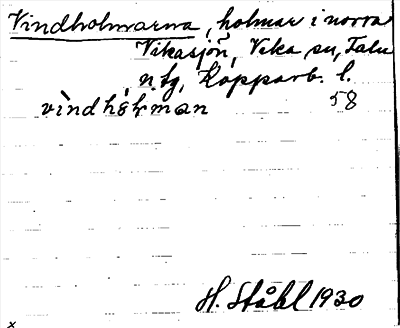 Vindholmarna, holmar i norra
Vikasjön, Vika sn, Falu
n.tg, Kopparb. l.
58
H. Ståhl 1930
x